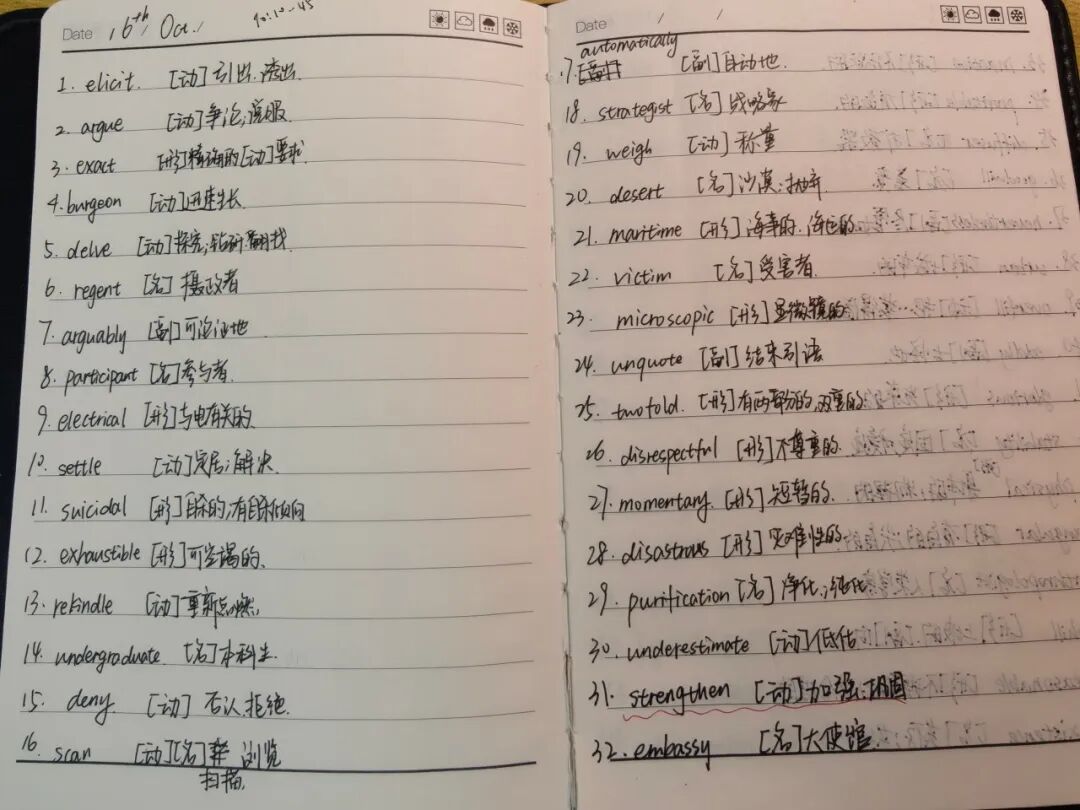 Date 16th Oct. 10:10-45
1. elicit. [动] 引出.
2. argue [动] 争论;说服
3. exact [形]精确的[动]要求
4. burgeon [动]迅速生长
5. delve [动]探究;钻研;翻找
6. regent [名] 摄政者
7. arguably [副]可论证地
8. participant [名]参与者.
9. electrical [形]与电有关的
10. settle [动]定居;解决
11. suicidal [形]自杀的;有自杀倾向
12. exhaustible [形]可空竭的
13. rekindle [动]重新点燃
14. undergraduate [名]本科生
15. deny. [动] 否认.拒绝.
16. scan [动][名] 浏览
扫描
Date / /
automatically
17. [副]自动地.
18. strategist [名]战略家
19. weigh [动]称量
20. desert [名]沙漠.抛弃
21. maritime [形]海事的.海边的
22. victim [名]受害者.
23. microscopic [形]显微镜的
24. unquote [副]结束引语
25. twofold. [形]有两部分的,双重的
26. disrespectful [形]不尊重的
27. momentary. [形]短暂的.
28. disastrous [形]灾难性的
29. purification [名]净化;纯化
30. underestimate [动]低估
31. strengthen [动]加强.巩固
32. embassy [名]大使馆